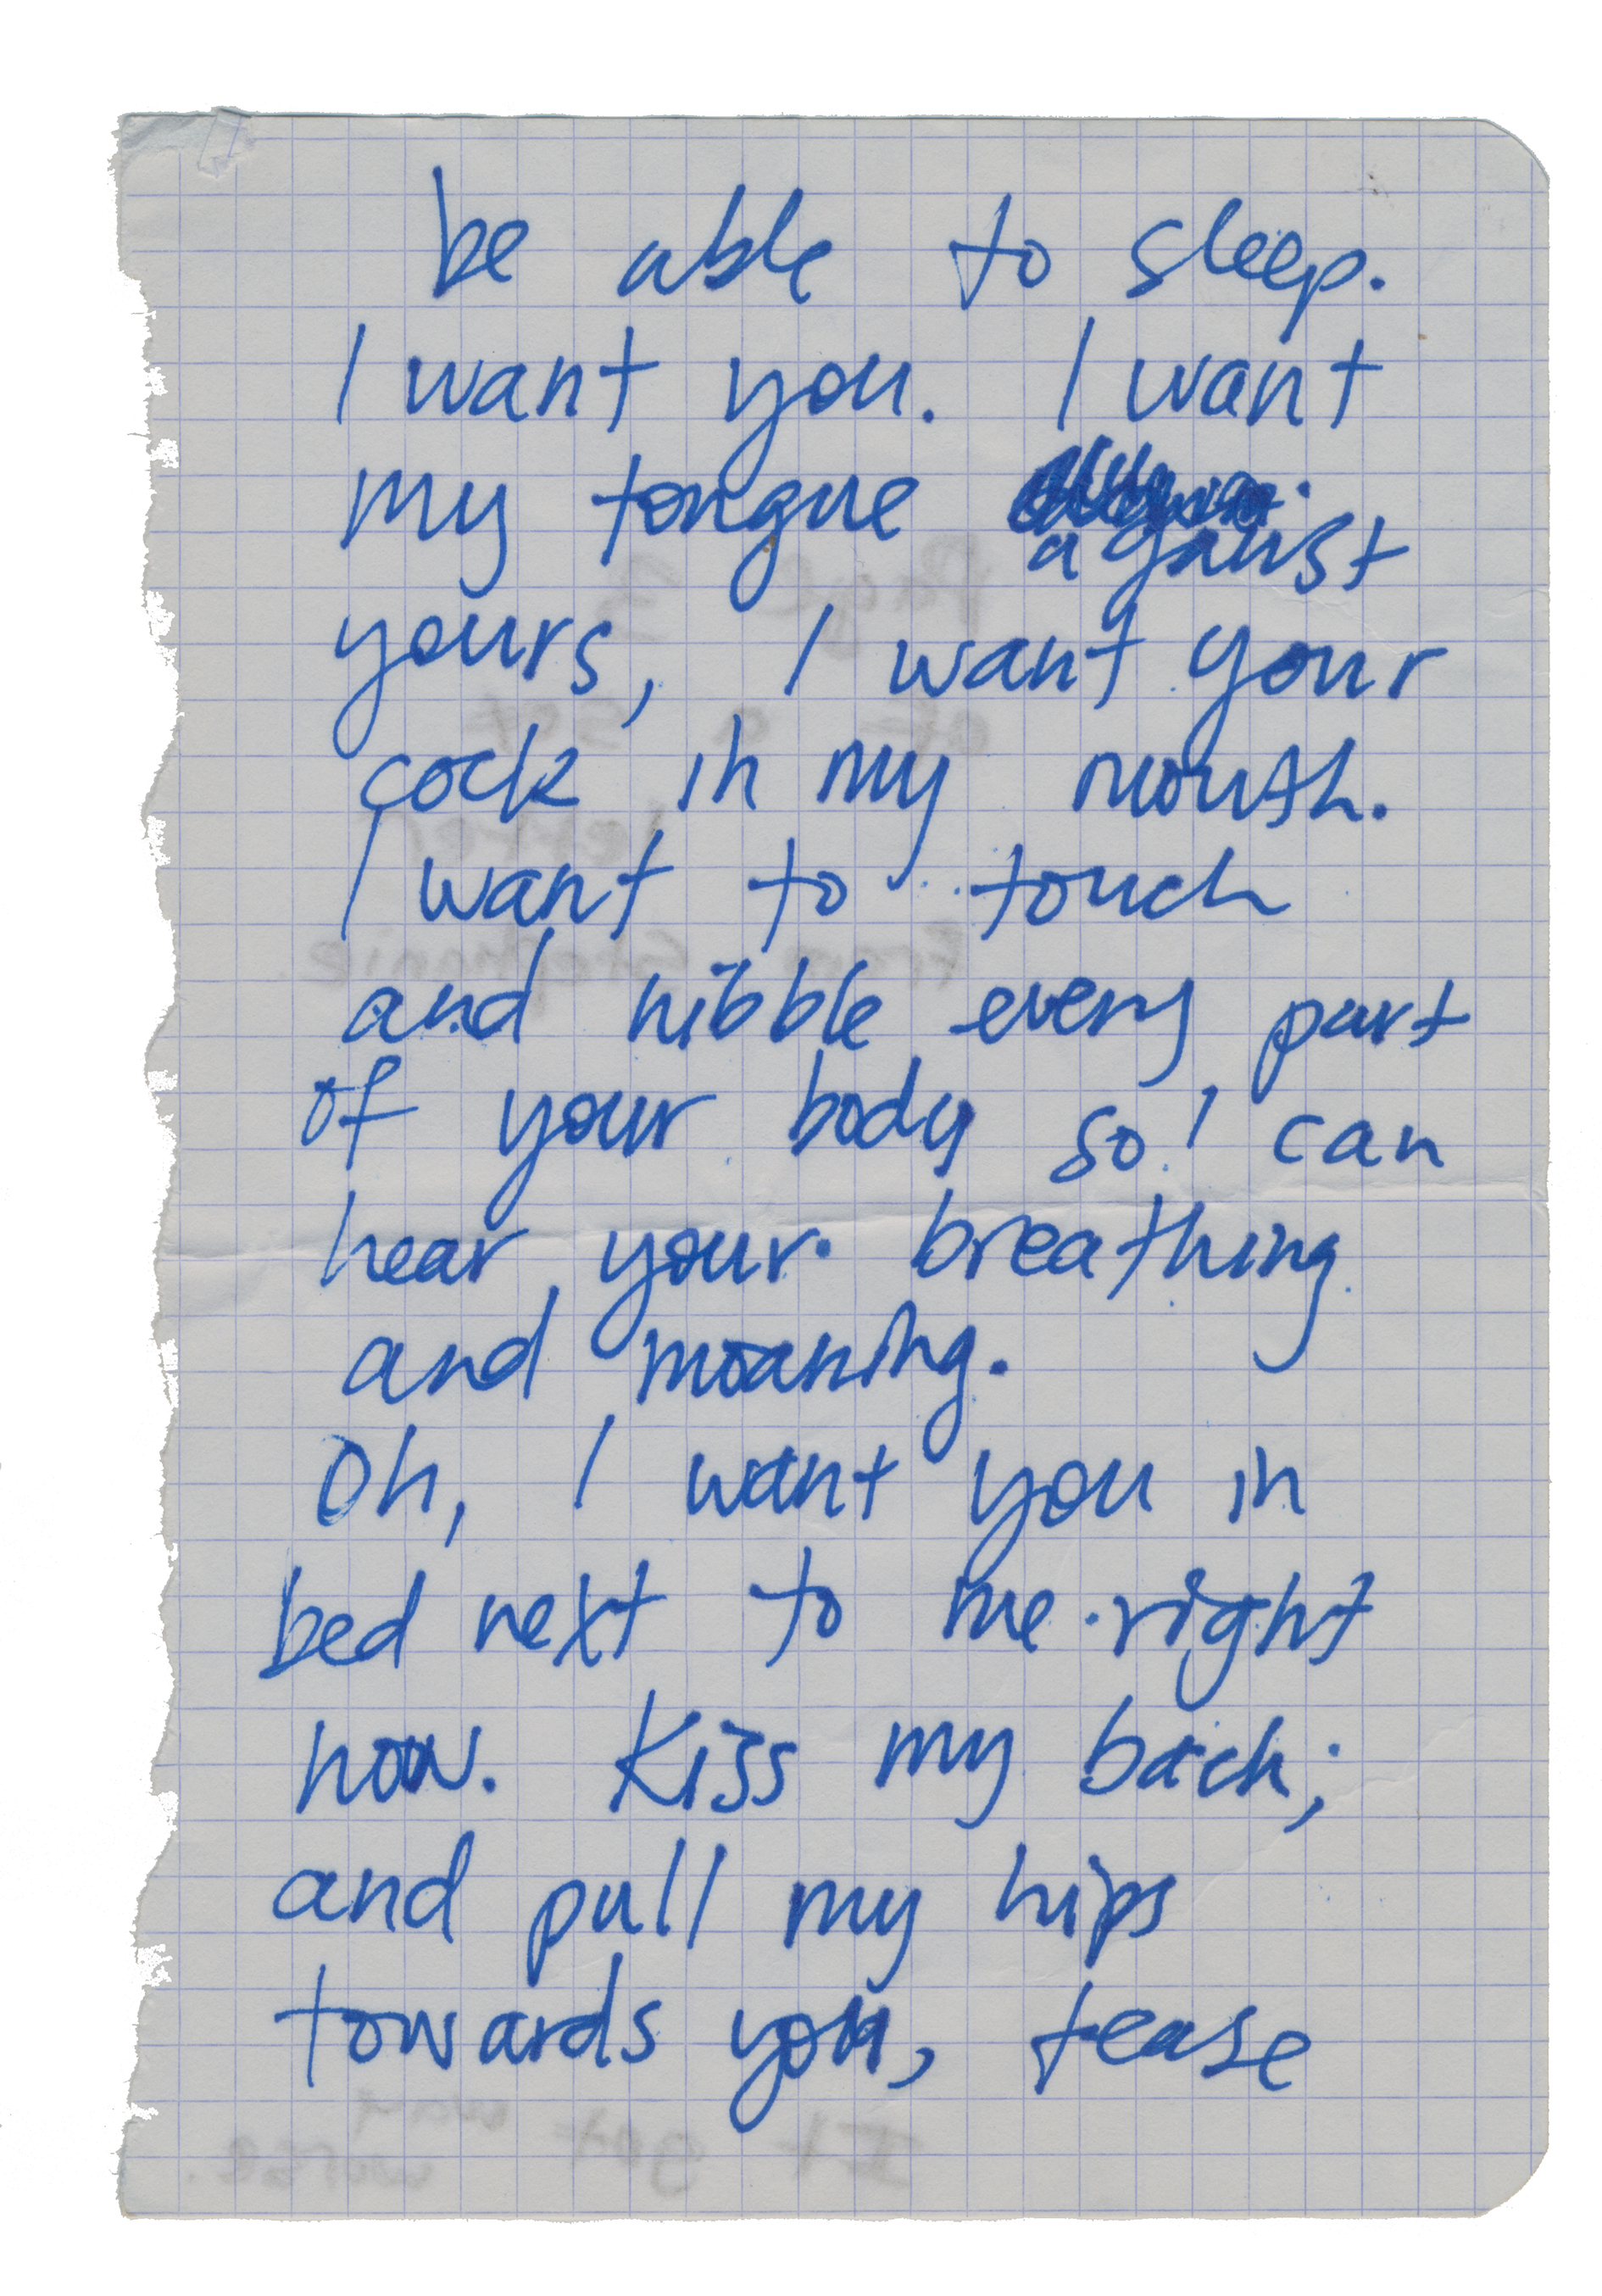 be able to sleep.
I want you. I want
my tongue
against
yours, I want your
cock in my mouth.
I want to touch
and nibble every part
of your body so I can
hear your breathing
and moaning.
Oh, I want you in
bed next to me right
now. Kiss my back,
and pull my hips
towards you, tease
Page 3
of a sex
letter
from Stephanie.
It got way
worse.